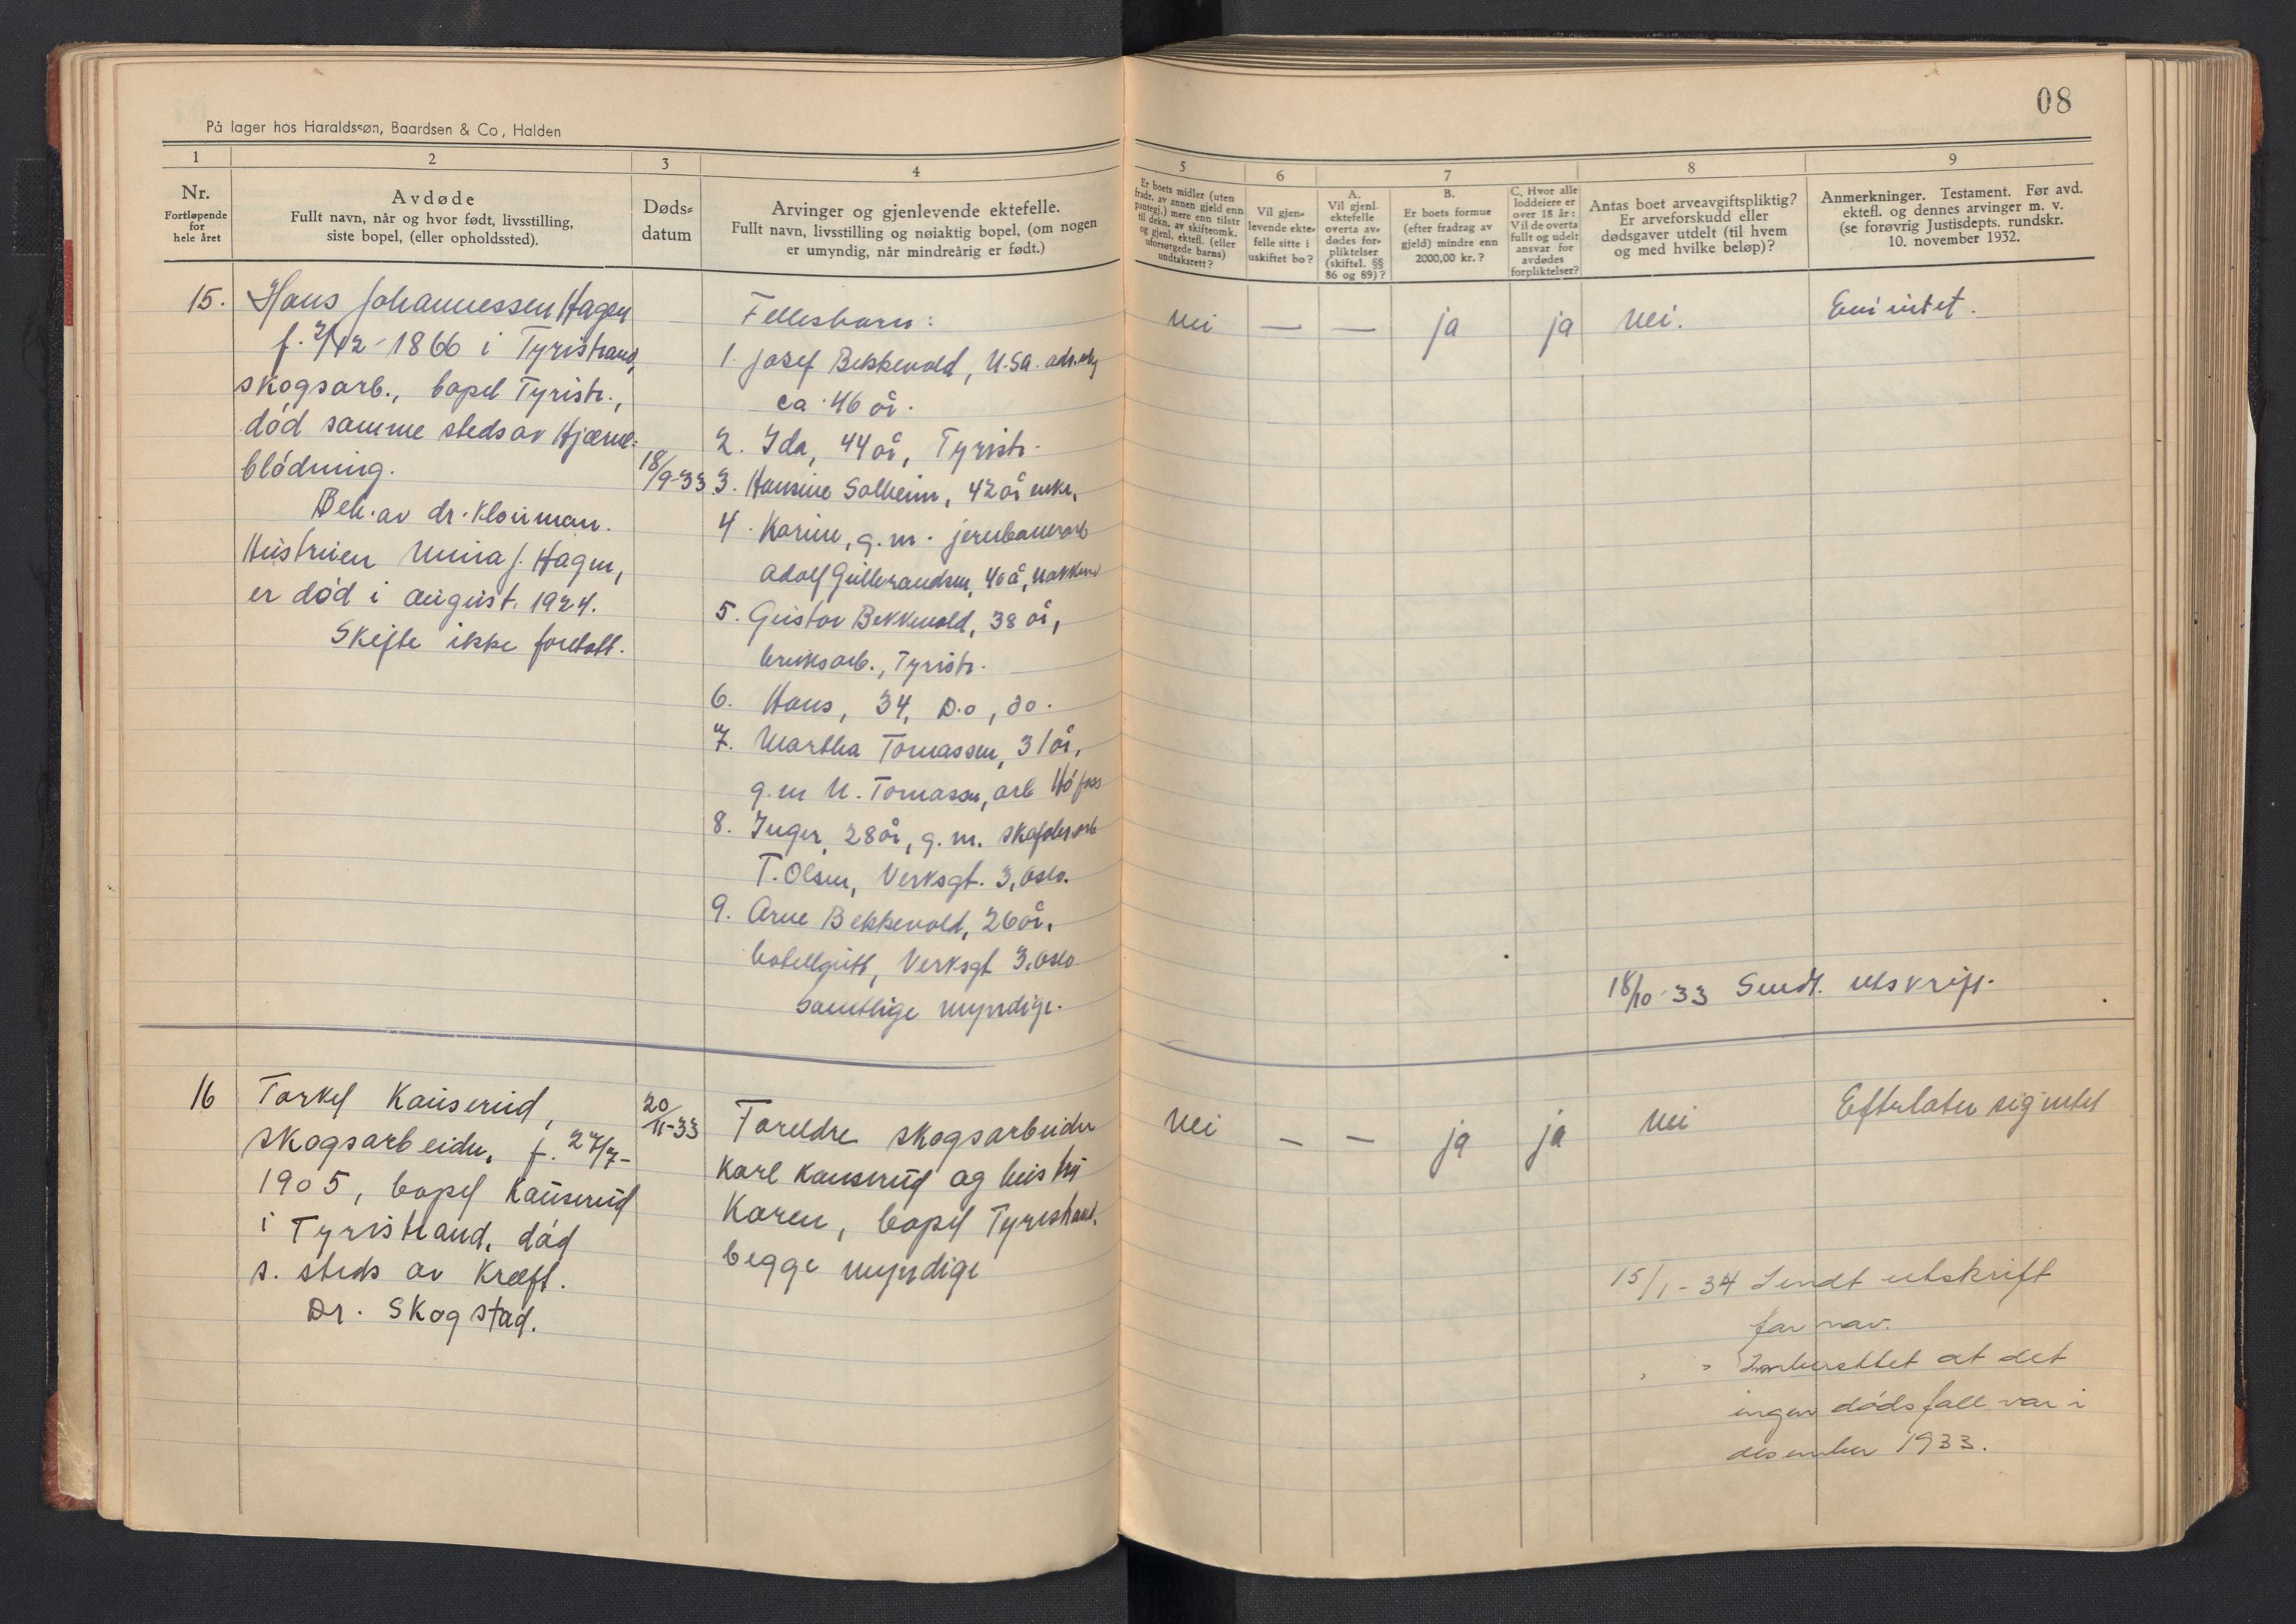 08
På lager hos Haraldssøn, Baardsen & Co, Halden
1
2
3
4
Nr.
Fortløpende
for
hele året
Avdøde
Fullt navn, når og hvor født, livsstilling,
siste bopel, (eller opholdssted).
Døds-
datum
Arvinger og gjenlevende ektefelle.
Fullt navn, livsstilling og nøiaktig bopel, (om nogen
er umyndig, når mindreårig er født.)
5
6
7
8
9
Er boets midler (uten
fradr. av annen gjeld enn
pantegj.) mere enn tilstr.
til dekn. av skifteomk.
og gjenl. ektefl. (eller
uforsørgede barns)
undtaksrett?
Vil gjen-
levende ekte-
felle sitte i
uskiftet bo?
A.
Vil gjenl.
ektefelle
overta av-
dødes for-
pliktelser
(skiftel. §§
86 og 89)?
B.
Er boets formue
(efter fradrag av
gjeld) mindre enn
2000,00 kr.?
C. Hvor alle
loddeiere er
over 18 år:
Vil de overta
fullt og udelt
ansvar for
avdødes
forpliktelser?
Antas boet arveavgiftspliktig?
Er arveforskudd eller
dødsgaver utdelt (til hvem
og med hvilke beløp)?
Anmerkninger. Testament. Før avd.
ektefl. og dennes arvinger m. v.
(se forøvrig Justisdepts. rundskr.
10. november 1932.
15.
Hans Johannessen Hagen
f. 2/12-1866 i Tyristrand,
skogsarb., bopel Tyristr.,
død samme steds av Hjerne-
blødning.
Beh. av dr. Klouman.
Hustruen Mina J. Hagen,
er død i august. 1924.
Skifte ikke foretatt.
18/9-33
Fellesbarn:
1. Josef Bekkevold, U.S.A. adr.
ca. 46 år.
2. Ida, 44 år, Tyristr.
3. Hansine Solheim, 42 år enke,
4. Karine, g.m. jernbanearb
Adolf Gulbrandsen, 40 å, Nakkerud
5. Gustav Bekkevold, 38 år,
bruksarb., Tyristr.
6. Hans, 34, D.o, do.
7. Martha Tomassen, 31 år,
g.m M. Tomassen, arb Høfoss
8. Inger, 28 år, g.m.
T. Olsen, Verksgt. 3, Oslo.
9. Arne Bekkevold, 26 år,
hotellgutt, Verksgt 3, Oslo
samtlige myndige.
Nei
—
—
ja
ja
Nei.
Eni intet.
18/10-33 Sendt. utskrift.
16
Torkel Kauserud,
skogsarbeider, f. 27/7-
1905, bopel Kauserud
i Tyristrand, død
s. steds av Kræft.
Dr. Skogstad.
20/11-33
Foreldre skogsarbeider
Karl Kauserud og hustru
Karen, bopel Tyristrand.
begge myndige
Nei
—
—
ja
ja
Nei
Efterlater sig intet
15/1-34 Sendt utskrift
for nov.
" " Innberettet at det
ingen dødsfall var i
desember 1933.